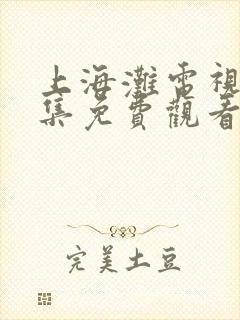 上海灘電視
集免費觀看
完美土豆